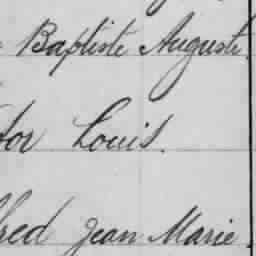 Baptiste Auguste
tor Louis.
fred Jean Marie.